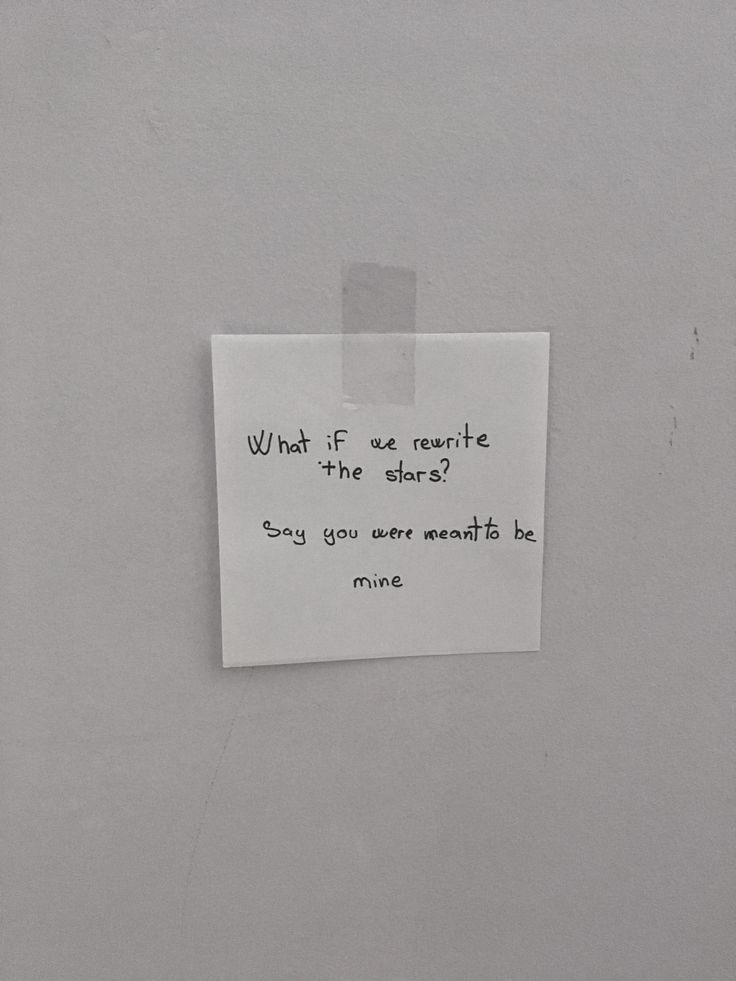 What if we rewrite
the stars?
Say you were meant to be
mine